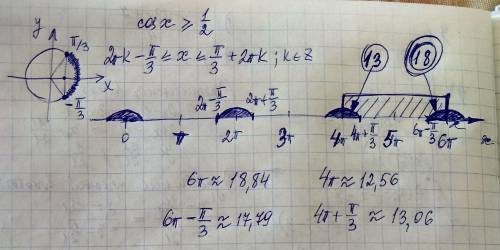 cos x ≥ 1/2
y π/3
2πk - π/3 ≤ x ≤ π/3 + 2πk ; k ∈ Z
x
-π/3
13 18
2π - π/3 2π + π/3
0 π 2π 3π 4π 4π + π/3 5π 6π - π/3 6π x
6π ≈ 18,84 4π ≈ 12,56
6π - π/3 ≈ 17,79 4π + π/3 ≈ 13,06